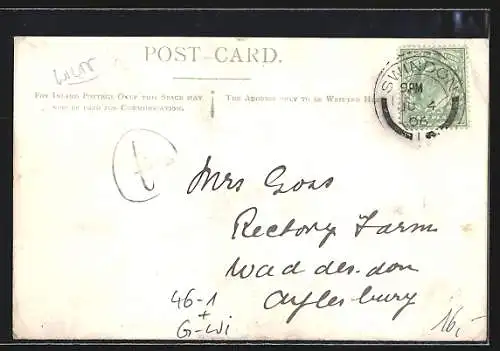 POST-CARD.
FOR INLAND POSTAGE ONLY THIS SPACE MAY
NOW BE USED FOR COMMUNICATION.
THE ADDRESS ONLY TO BE WRITTEN HE
SWINDON
9PM
4
06
Mrs Goss
Rectory Farm
Waddesdon
Aylesbury
46-1
+
G-Wi
16,-